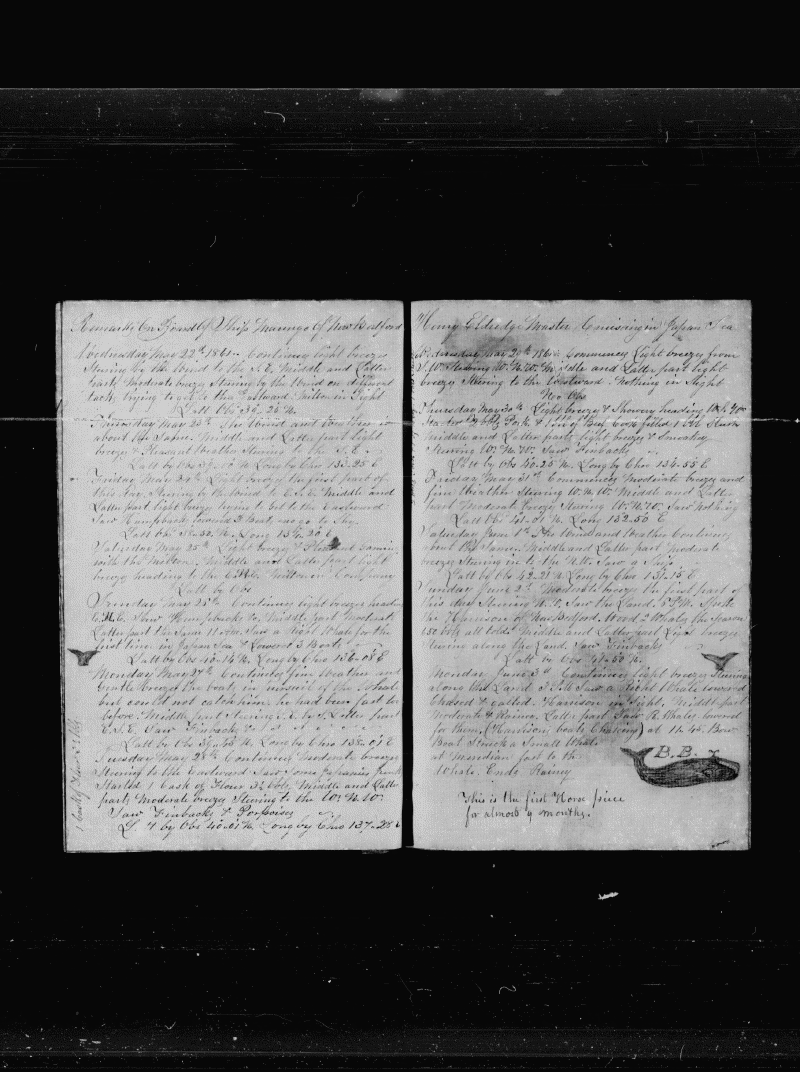 Remarks On Board Of Ship Marengo of New Bedford
Wednesday May 22th 1861 Continues light breezes
Stearing by the Wind to the S.E. Middle and Latter
part Moderate breeze Stearing by the Wind on different
tack, trying to get to the Eastward Milton in Sight
Latt Obs 38 24 N.
Thursday May 23th The Wind and Weather
about the Same. Middle and Latter part light
breeze & Pleasant Weather Stearing to the S.E.
Latt by Obs N Long by Chro 25 E
Friday May 24th Light breeze the first part of
this day Stearing by the Wind to E.S.E. Middle and
Latter part light breeze trying to get to the Eastward
Saw Humpbacks lowered 3 Boats
Latt Obs N. Long 134 20 E
Saturday May 25th Light breeze & Pleasant Gaming
with the Milton. Middle and Latter part light
breeze heading to the Milton in Company
Latt by Obs
Sunday May 26th Continues light breezes heading
E.N.E. Saw Humpbacks Middle part Moderate
Latter part the Same 11 Saw a Right Whale for the
first time in Japan Sea & Lowered 3 Boats
Latt by Obs N Long by Chro 136-08 E
Monday May 27th Continues fine Weather and
Gentle breezes the boats in pursuit of the Whale
but could not catch him he had been fast to
before. Middle part Stearing Latter part
E.S.E. Saw Finbacks
Latt by Obs N. Long by Chro E
Tuesday May 28th Continues Moderate breezes
Stearing to the Eastward Saw Some Japanies Junk
Started 1 Cask of Flour 3½ bbls. Middle and Latter
parts Moderate breezes Stearing to the W.N.W.
Saw Finbacks & Porpoises
by Obs 40-01 N Long by Chro 137-28 E
1 Cask of Flour
Henry Eldredge Master Cruising in Japan Sea
Wednesday May 29th 1861 Commences Light breezes from
S.W. Stearing W.N.W. Middle and Latter part light
breezes Stearing to the Westward. Nothing in Sight
No Obs
Thursday May 30th Light breeze & Showery heading
Started 2 bbls Pork & 1 of Beef
Middle and Latter parts light breezes & Smoky
Stearing W.N.W. Saw Finbacks
Latt by Obs 40-25 N. Long by Chro 134-55 E
Friday May 31st Commences Moderate breeze and
fine Weather Stearing W.N.W. Middle and Latter
part Moderate breezes Stearing W.N.W. Saw Nothing
Latt Obs 41-01 N. Long 132-50 E
Saturday June 1st The Wind and Weather Continues
about the Same. Middle and Latter part moderate
breeze Stearing in to the N.W. Saw a Ship
Latt by Obs 42-21 N. Long by Chro 131-15 E
Sunday June 2th Moderate breeze the first part of
this day Stearing N.W. Saw the Land. 5 P.M. Spoke
the Harrison of New Bedford. Wood 2 Whales the season
150 bbls all told Middle and Latter part Light breezes
Stearing along the Land. Saw Finbacks
Latt by Obs 42-50 N.
Monday June 3th Continues light breezes Stearing
along the Land 3 P.M. Saw a Right Whale lowered
Chased & galled. Harrison in Sight. Middle part
Moderate & Rainy. Latter part Saw R. Whales lowered
for them, (Harrison, boats Chasing) at 11-45. Bow
Boat Struck a Small Whale
at Meridian fast to the
Whale. Ends Rainy
B.B. 7
This is the first Horse piece
for almost 9 months.